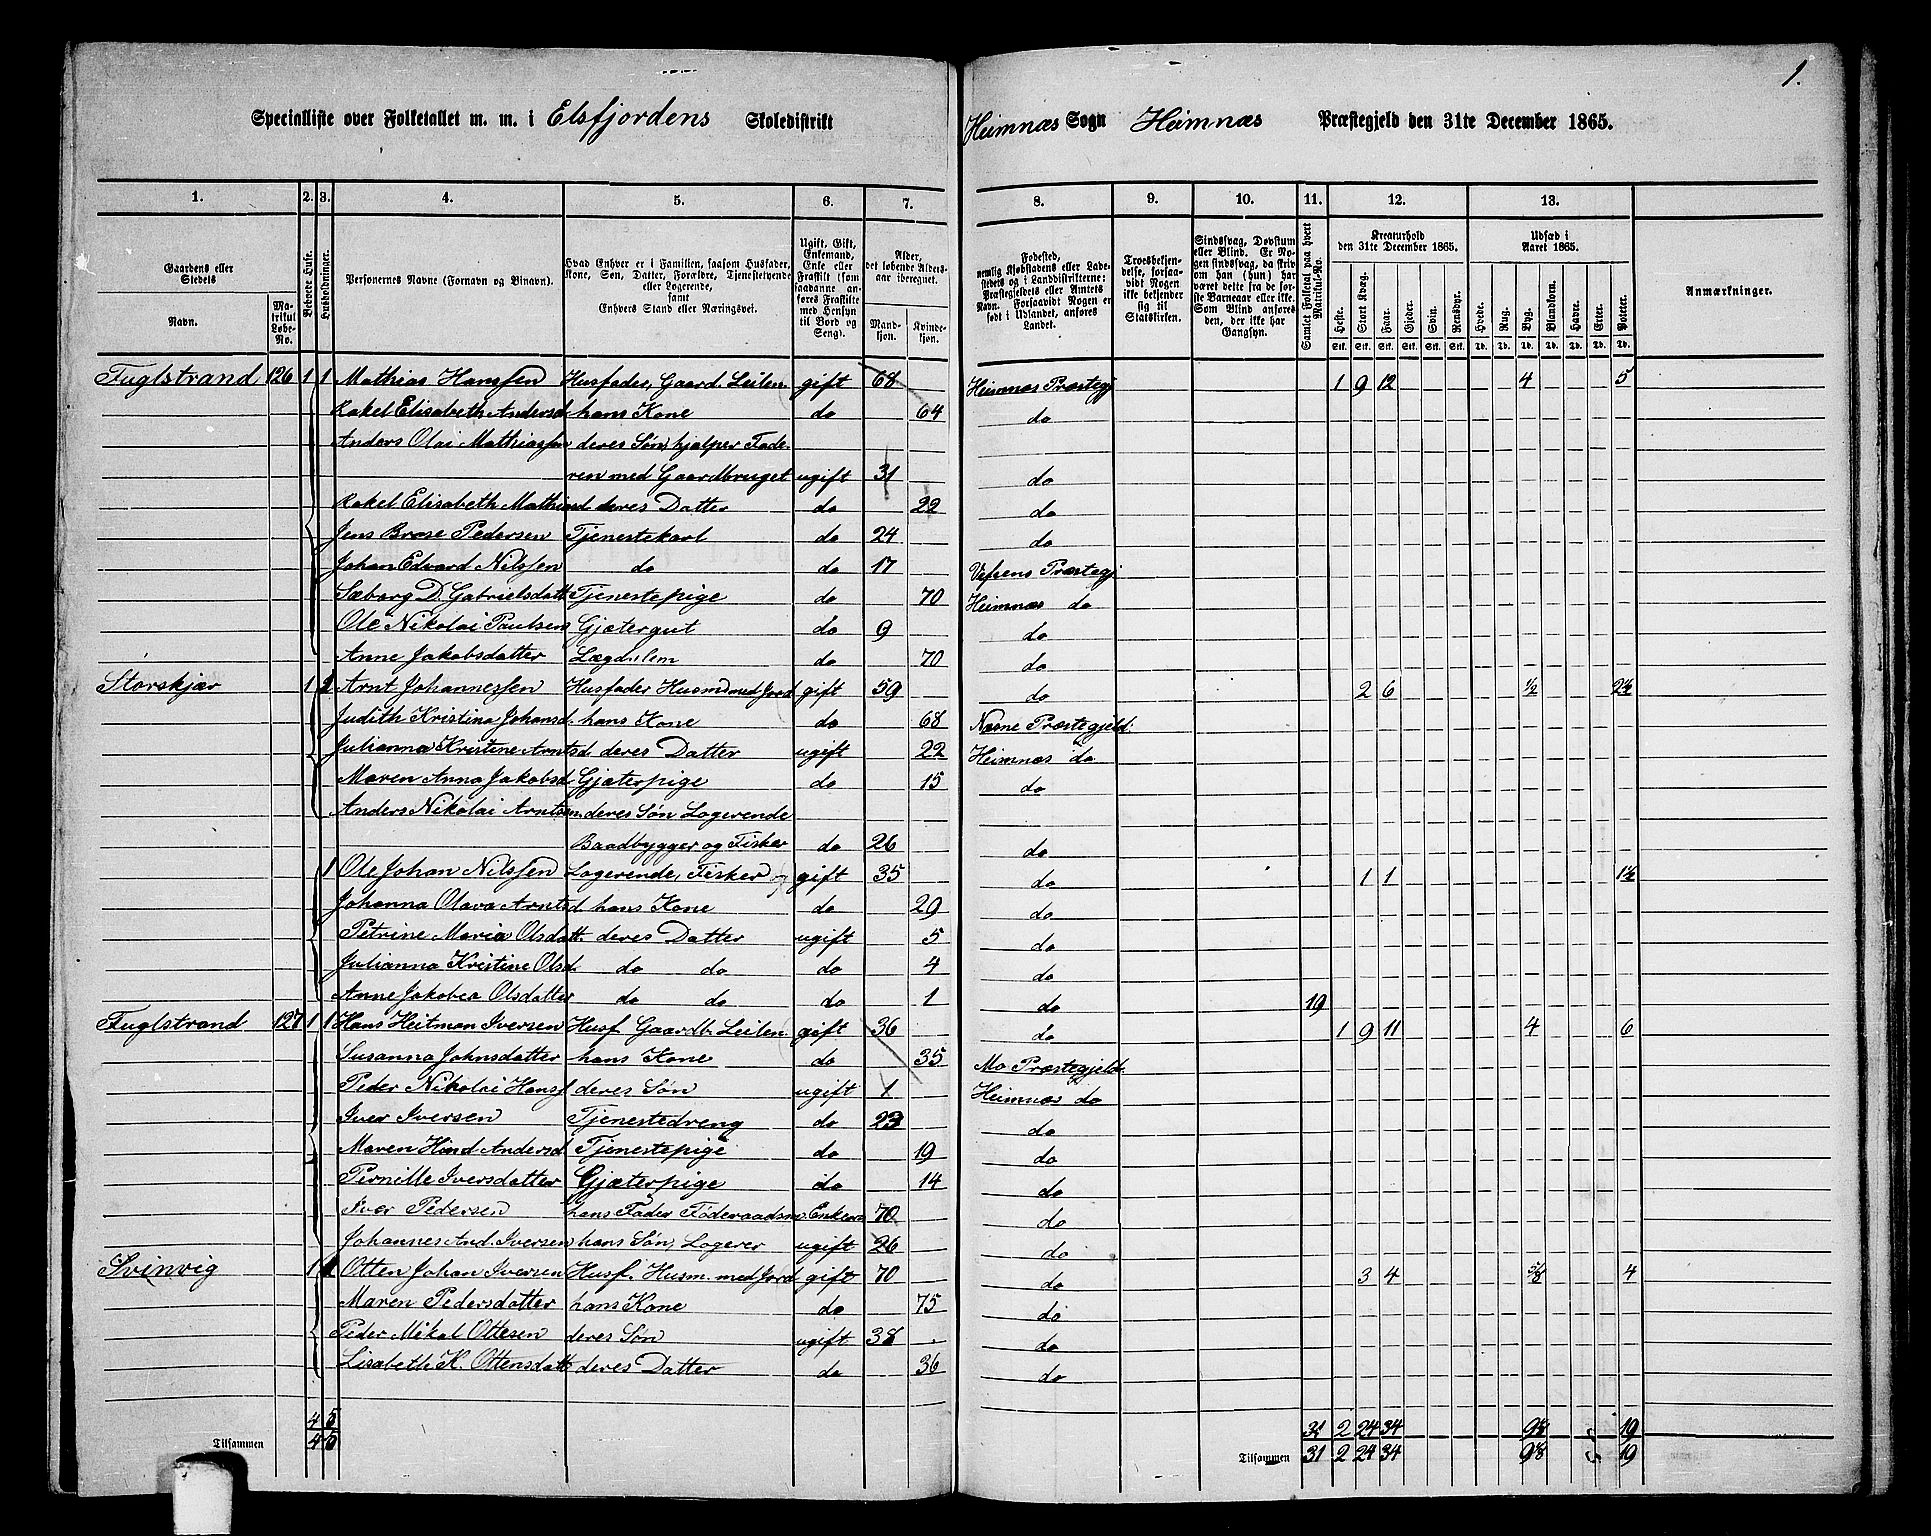 1.
Specialliste over Folketallet m. m. i Elsfjordens Skoledistrikt Heimnæs Sogn Heimnæs Præstegjeld den 31te December 1865.
1. 2. 3. 4. 5. 6. 7. 8. 9. 10. 11. 12. 13.
Gaardens eller Stedets
Navn.
Matrikul Løbe-No.
Beboede Huse.
Husholdninger.
Personernes Navne (Fornavn og Binavn).
Hvad Enhver er i Familien, saasom Husfader, Kone, Søn, Datter, Forældre, Tjenestetyende eller Logerende, samt Enhvers Stand eller Næringsvei.
Ugift, Gift, Enkemand, Enke eller Fraskilt (saavanne anføres Fraskilte med Hensyn til Bord og Seng).
Alder, det løbende Aldersaar iberegnet.
Mandkjøn.
Kvindekjøn.
Fødested,
Troesbekjendelse, forsaavidt Nogen ikke bekjender sig til Statskirken.
Samlet Folketal paa hvert Matrikul-No.
Kreaturhold den 31te December 1865.
Heste. Stort Kvæg. Faar. Gjeder. Svin. Rensdyr.
Udsæd i Aaret 1865.
Hvede. Rug. Byg. Blandkorn. Havre. Erter. Poteter.
Anmærkninger.
Fuglstrand 126 1 1 Mathias Hanssen Husfader, Gaard. Leilen. gift 68 Heimnæs Præstegj 1 9 12 4 5
Rakel Elisabeth Andersd hans Kone do 64 do
Anders Olai Mathiassen deres Søn, hjælper Fade-
ren med Gaardbruget ugift 31 do
Rakel Elisabeth Mathiasd deres Datter do 22 do
Jens Brose Pedersen Tjenestekarl do 24 do
Johan Edvard Nilssen do do 17 Vefsens Præstegj
Sæborg D. Gabrielsdatt Tjenestepige do 70 Heimnæs do
Ole Nikolai Paulsen Gjætergut do 9 do
Anne Jakobsdatter Lægdslem do 70 do
Storskjær 1 1 Arnt Johannessen Husfader Husmd med Jord gift 59 do 2 6 ½ 2½
Judith Kristina Johansd. hans Kone do 68 Næsne Præstegjeld.
Julianna Kristine Arntsd. deres Datter ugift 22 Heimnæs do
Maren Anna Jakobsd Gjæterpige do 15 do
Anders Nikolai Arntsen deres Søn Logerende
Baadbygger og Fisker do 26 do
1 Ole Johan Nilssen Logerende, Fisker gift 35 do 1 1 1½
Johanna Olava Arntsd hans Kone do 29 do
Petrine Maria Olsdatt. deres Datter ugift 5 do
Julianna Kristine Olsd. do do do 4 do
Anne Jakobea Olsdatter do do do 1 do 19
Fuglstrand 127 1 1 Hans Heitman Iversen Husf. Gaardb. Leilen. gift 36 do 1 9 11 4 6
Susanna Johnsdatter hans Kone do 35 Mo Præstegjeld.
Peder Nikolai Hansf deres Søn ugift 1 Heimnæs do
Iver Iversen Tjenestedreng do 23 do
Maren Hind Andersd Tjenestepige do 19 do
Pernille Iversdatter Gjæterpige do 14 do
Iver Pedersen hans Fader Føderaadsm. Enkem 70 do
Johannes And. Iversen hans Søn, Logerer ugift 26 do
Svinvig 1 1 Otten Johan Iversen Husf. Husm. med Jord gift 70 do 3 4 ⅝ 4
Maren Pedersdatter hans Kone do 75 do
Peder Mikal Ottesen deres Søn ugift 38 do
Lisabeth K. Ottensdatt deres Datter do 36 do
4 5 31 2 24 34 9⅛ 19
Tilsammen 4 5 Tilsammen 31 2 24 34 9⅛ 19